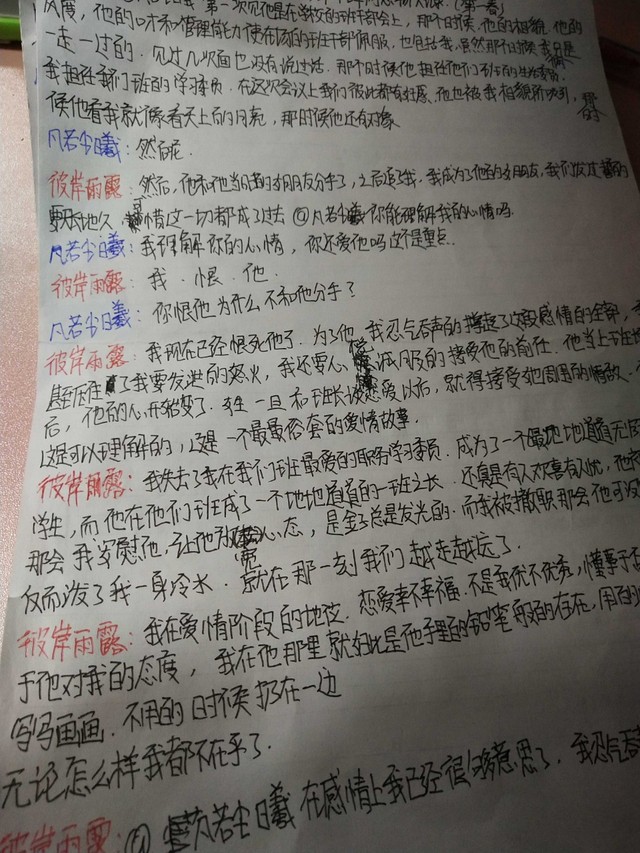 第一次见他是在学校的班干部会上，那个时候，他的相貌，他的
风度，他的口才和管理能力使在场的班干部佩服，也包括我，虽然那个时候
一走一过的．见过几次面也没有说过话．那个时候他担任他们班的生活委员．
我担任我们班的学习委员．在这次会议上我们彼此都有好感．他也被我相貌所吸引，
候他看我就像看天上的月亮，那时候他还有对象
凡若尘曦：然后呢．
彼岸雨露：然后，他和他当时的女朋友分手了，之后追了我．我成为了他的女朋友，我们发过
天长地久 情这一切都成了过去 @凡若尘曦你能理解我的心情吗．
凡若尘曦：我理解你的心情，你还爱他吗这个是重点．
彼岸雨露：我．恨．他．
凡若尘曦：你恨他为什么不和他分手？
彼岸雨露：我现在已经恨死他了．为了他，我忍气吞声的撑起了这段感情的全部，
甚至压住了我要发泄的怒火，我还要心悦诚服的接受他的前任．他当上班长
后，他的心开始变了．学生一旦和班长谈恋爱以后，就得接受他周围的情敌．
这是可以理解的，这是一个最最俗套的爱情故事．
彼岸雨露：我失去了我在我们班最爱的职务学习委员．成为了一个地地道道
学生，而他在他们班成了一个地地道道的一班之长．还真是有人欢喜有人忧，
那会我安慰他，让他放宽心态，是金子总是发光的．而我被撤职那会他
反而泼了我一身冷水．就在那一刻我们越走越远了．
彼岸雨露：我在爱情阶段的地位．恋爱幸不幸福．不是我优不优秀，懂事
于他对我的态度，我在他那里就好比是他手里的铅笔般的存在，用的
写写画画．不用的日时候扔在一边
无论怎么样我都不在乎了．
彼岸雨露：@凡若尘曦 在感情上我已经很够意思了．我忍气吞